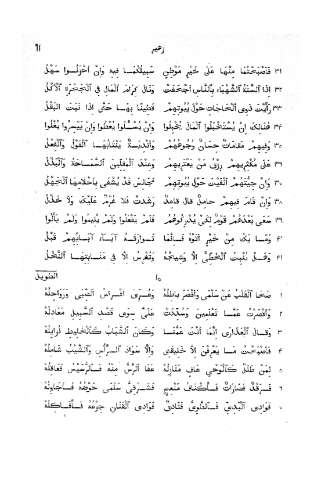 زهير ٦١
٣١ فأصبحتما منها على خير موطن سبيلكما فيه وإن أحزنوا سهل
٣٢ إذا السنة الشهباء بالناس أجحفت ونال كرام المال في الجحرة الأكل
٣٣ رأيت ذوي الحاجات حول بيوتهم قطينا بها حتى إذا نبت البقل
٣٤ هنالك إن يستخبلوا المال يخبلوا وإن يسألوا يعطوا وإن ييسروا يغلوا
٣٥ وفيهم مقامات حسان وجوههم وأندية ينتابها القول والفعل
٣٦ على مكثريهم رزق من يعتريهم وعند المقلين السماحة والبذل
وإن جئتهم ألفيت حول بيوتهم مجالس قد يشفى بأحلامها الجهل
وإن قام فيهم حامل قال قاعد رشدت فلا غرم عليك ولا خذل
سعى بعدهم قوم لكي يدركوهم فلم يفعلوا ولم يليموا ولم يألوا
وما يك من خير أتوه فإنما توارثه آباء آبائهم قبل
٤١ وهل ينبت الخطي إلا وشيجه وتغرس إلا في منابتها النخل
١٥ الطويل
١ صحا القلب عن سلمى وأقصر باطله وعري أفراس الصبى ورواحله
٢ وأقصرت عما تعلمين وسددت علي سوى قصد السبيل معادله
٣ وقال العذارى إنما أنت عمنا وكان الشباب كالخليط نزايله
٤ فأصبحت ما يعرفن إلا خليقتي وإلا سواد الرأس والشيب شامله
٥ لمن طلل كالوحي عاف منازله عفا الرس منه فالرسيس فعاقله
٦ فرقد فصارات فأكناف منعج فشرقي سلمى حوضه فأجاوله
٧ فوادي البدي فالطوي فثادق فوادي القنان جزعه فأفاكله